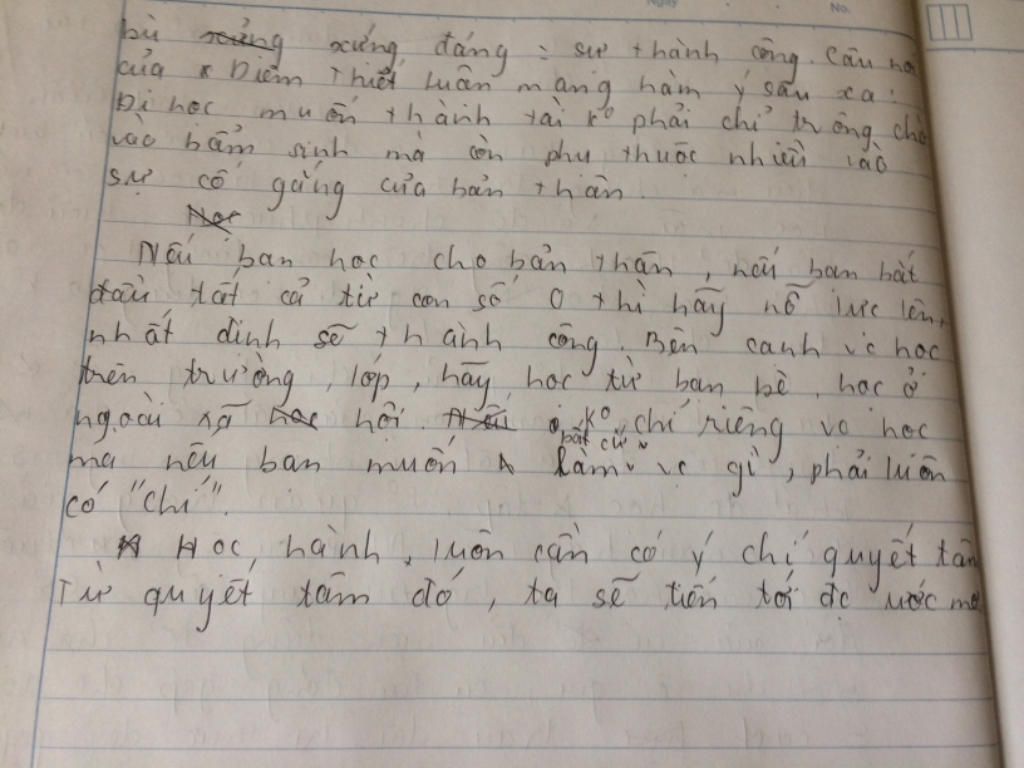 Ngày No.
bù xứng đáng : sự thành công. Câu nó
của Diêm Thiết Luân mang hàm ý sâu xa:
Đi học muốn thành tài ko phải chỉ trông chờ
vào bẩm sinh mà còn phụ thuộc nhiều vào
sự cố gắng của bản thân.
Nếu bạn học cho bản thân, nếu bạn bắt
đầu tất cả từ con số 0 thì hãy nỗ lực lên,
nhất định sẽ thành công. Bên cạnh vc học
trên trường, lớp, hãy học từ bạn bè, học ở
ngoài xã hội. Ko chỉ riêng vc học
mà nếu bạn muốn làm bất cứ vc gì, phải luôn
có "Chí".
Học hành, luôn cần có ý chí quyết tâm
Từ quyết tâm đó, ta sẽ tiến tới đc ước mơ